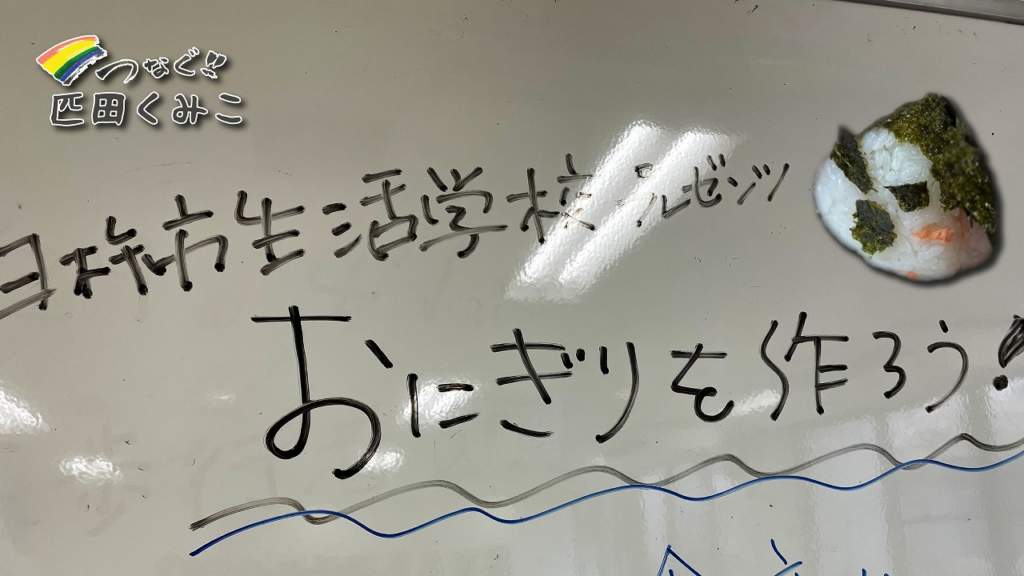 つなぐ!!
匹田くみこ
生活学校プレゼンツ
おにぎりを作ろう!